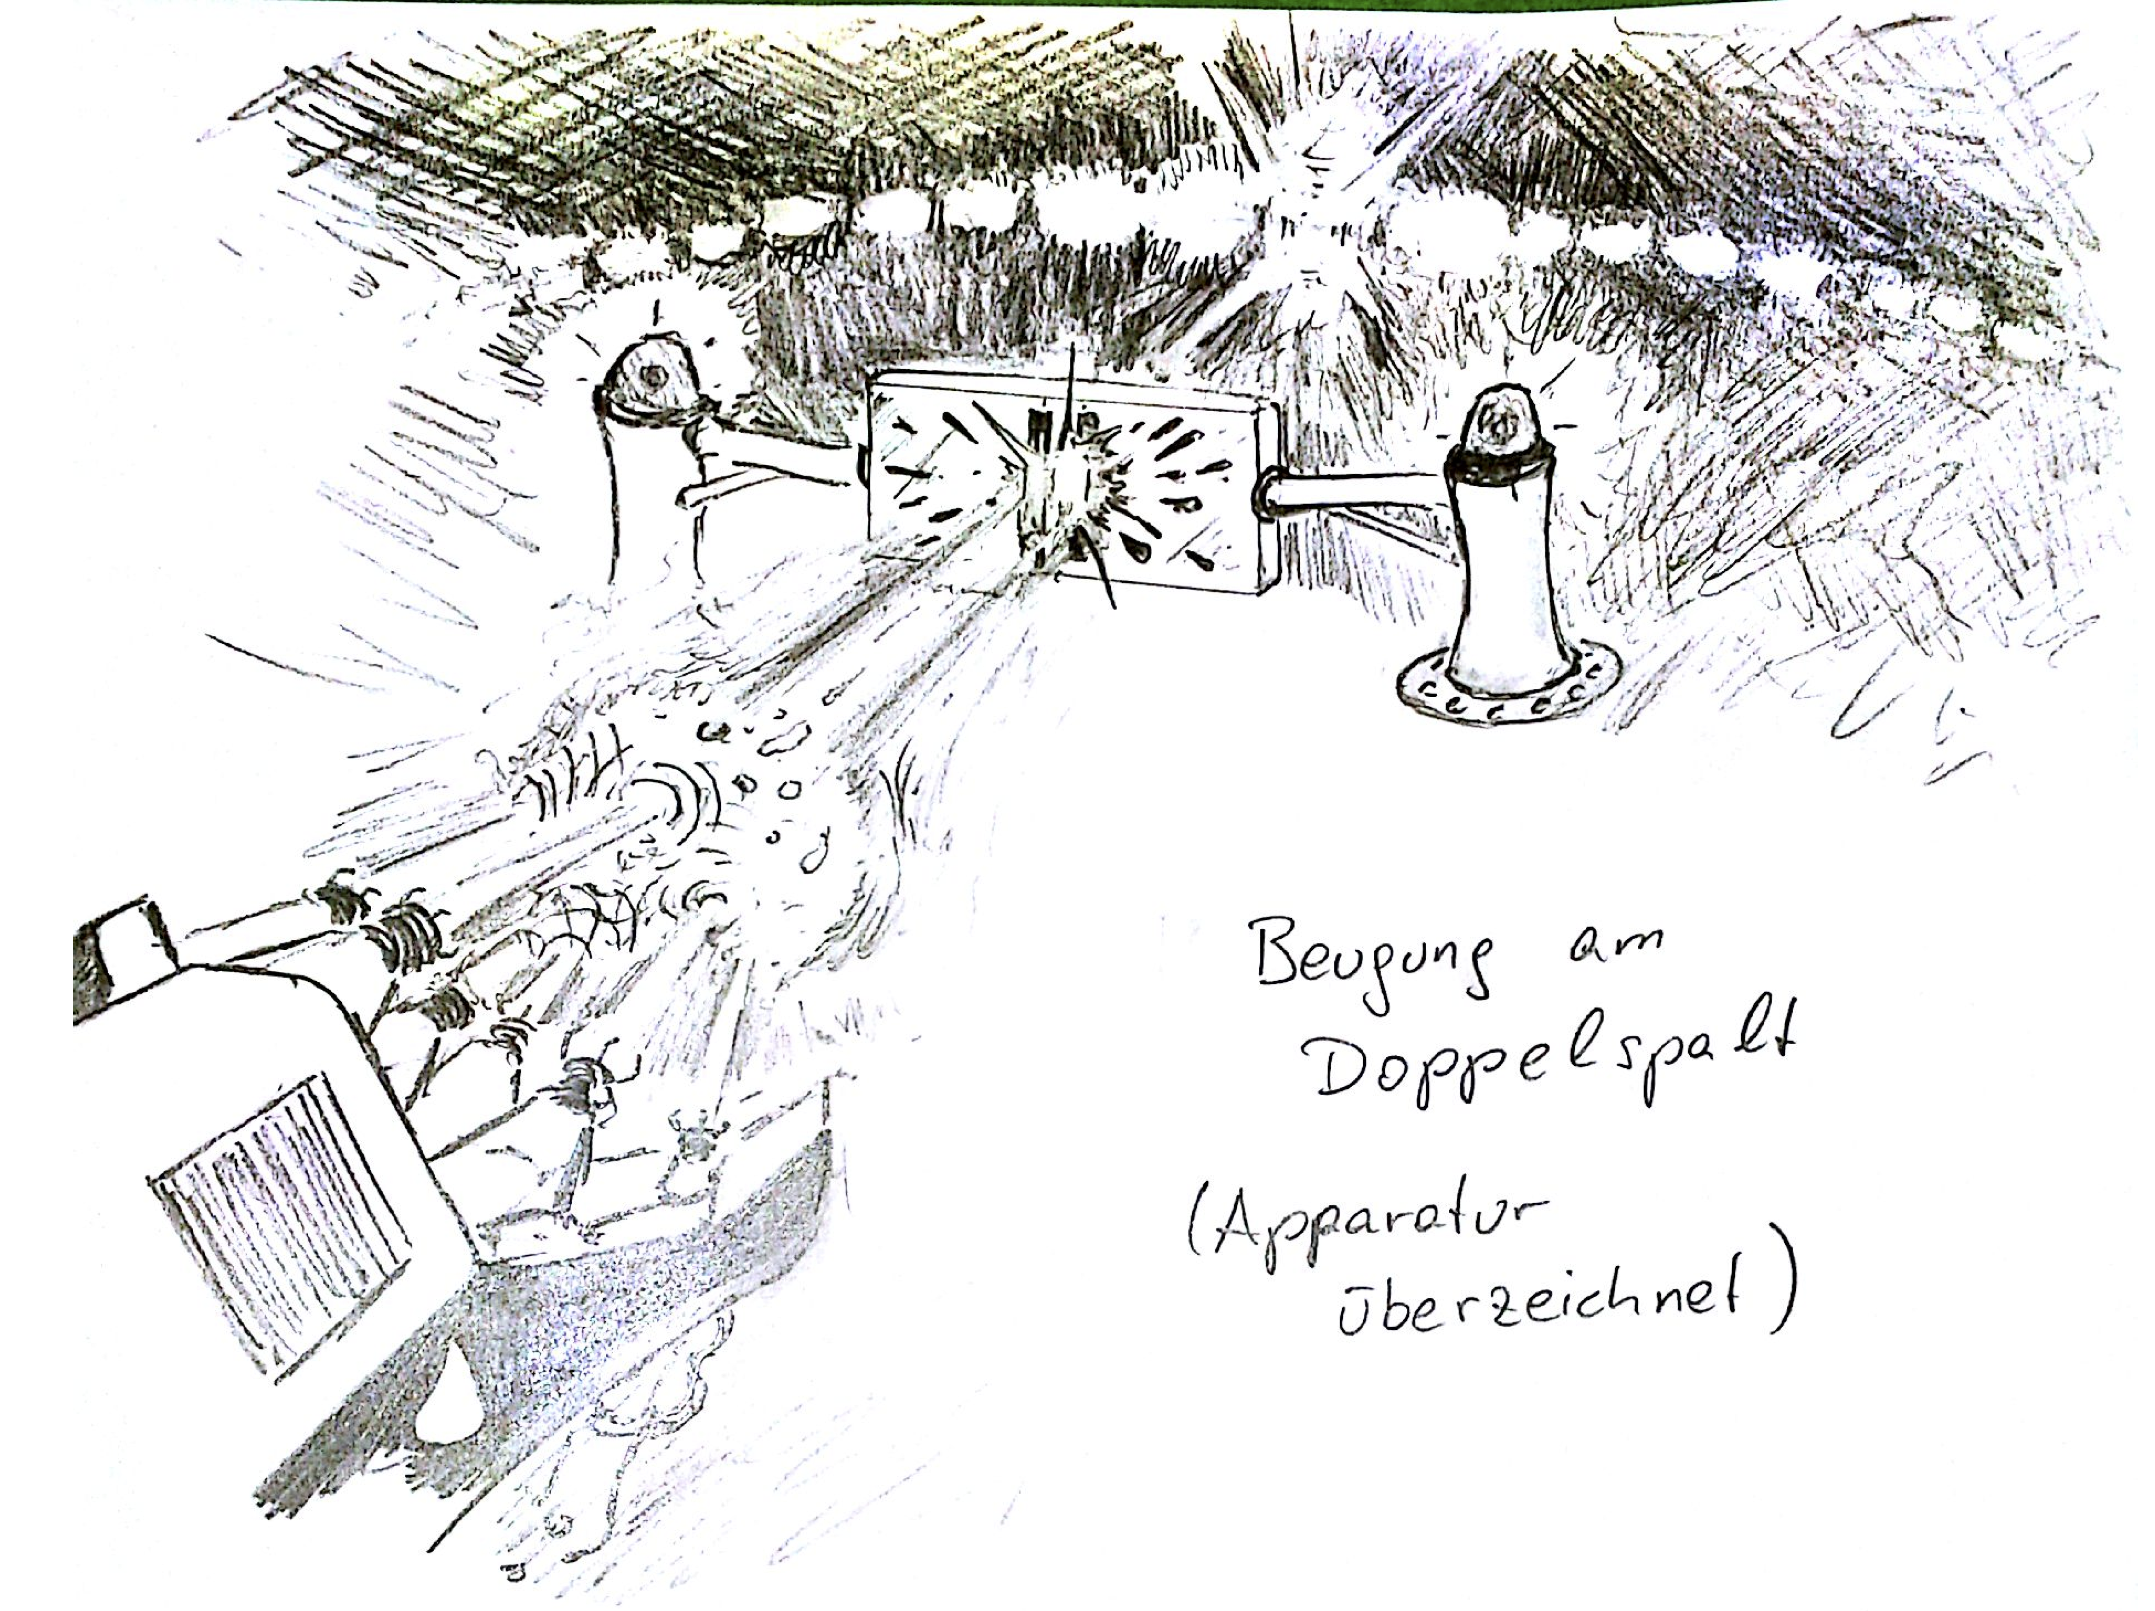 Beugung am
Doppelspalt
(Apparatur
überzeichnet)